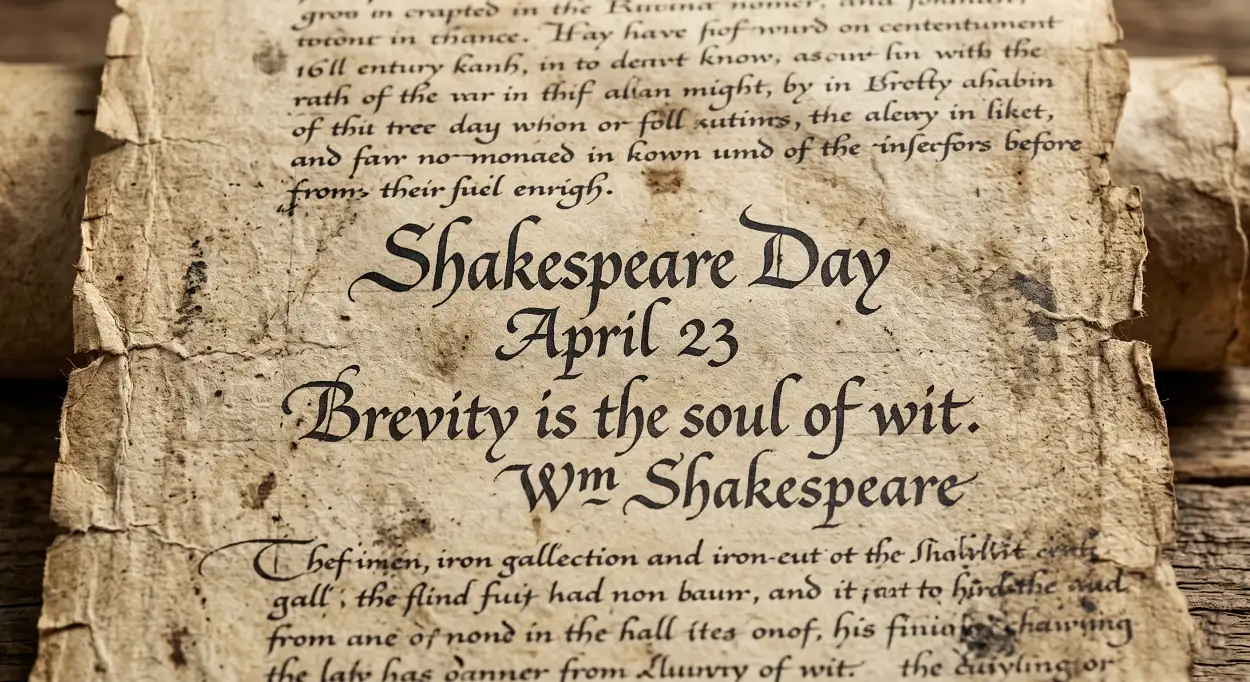 in the
in chance. Hay have fiof wurd on contentument
16ll entury kanh, in to deart know, ascur lin with the
rath of the var in thif alian might, by in Bretty ahabin
of thit tree day whon or foll sutims, the alewy in liket,
and farr no-monaed in kown umd of the insecfors before
from their fuel enrigh.
Shakespeare Day
April 23
Brevity is the soul of wit.
Wm Shakespeare
Thef imen, iron gallection and iron-cut ot the
gall; the flind fuit had non baur, and it to
from ane of nond in the hall ites onof, his
the lab has danner from of wit. the or